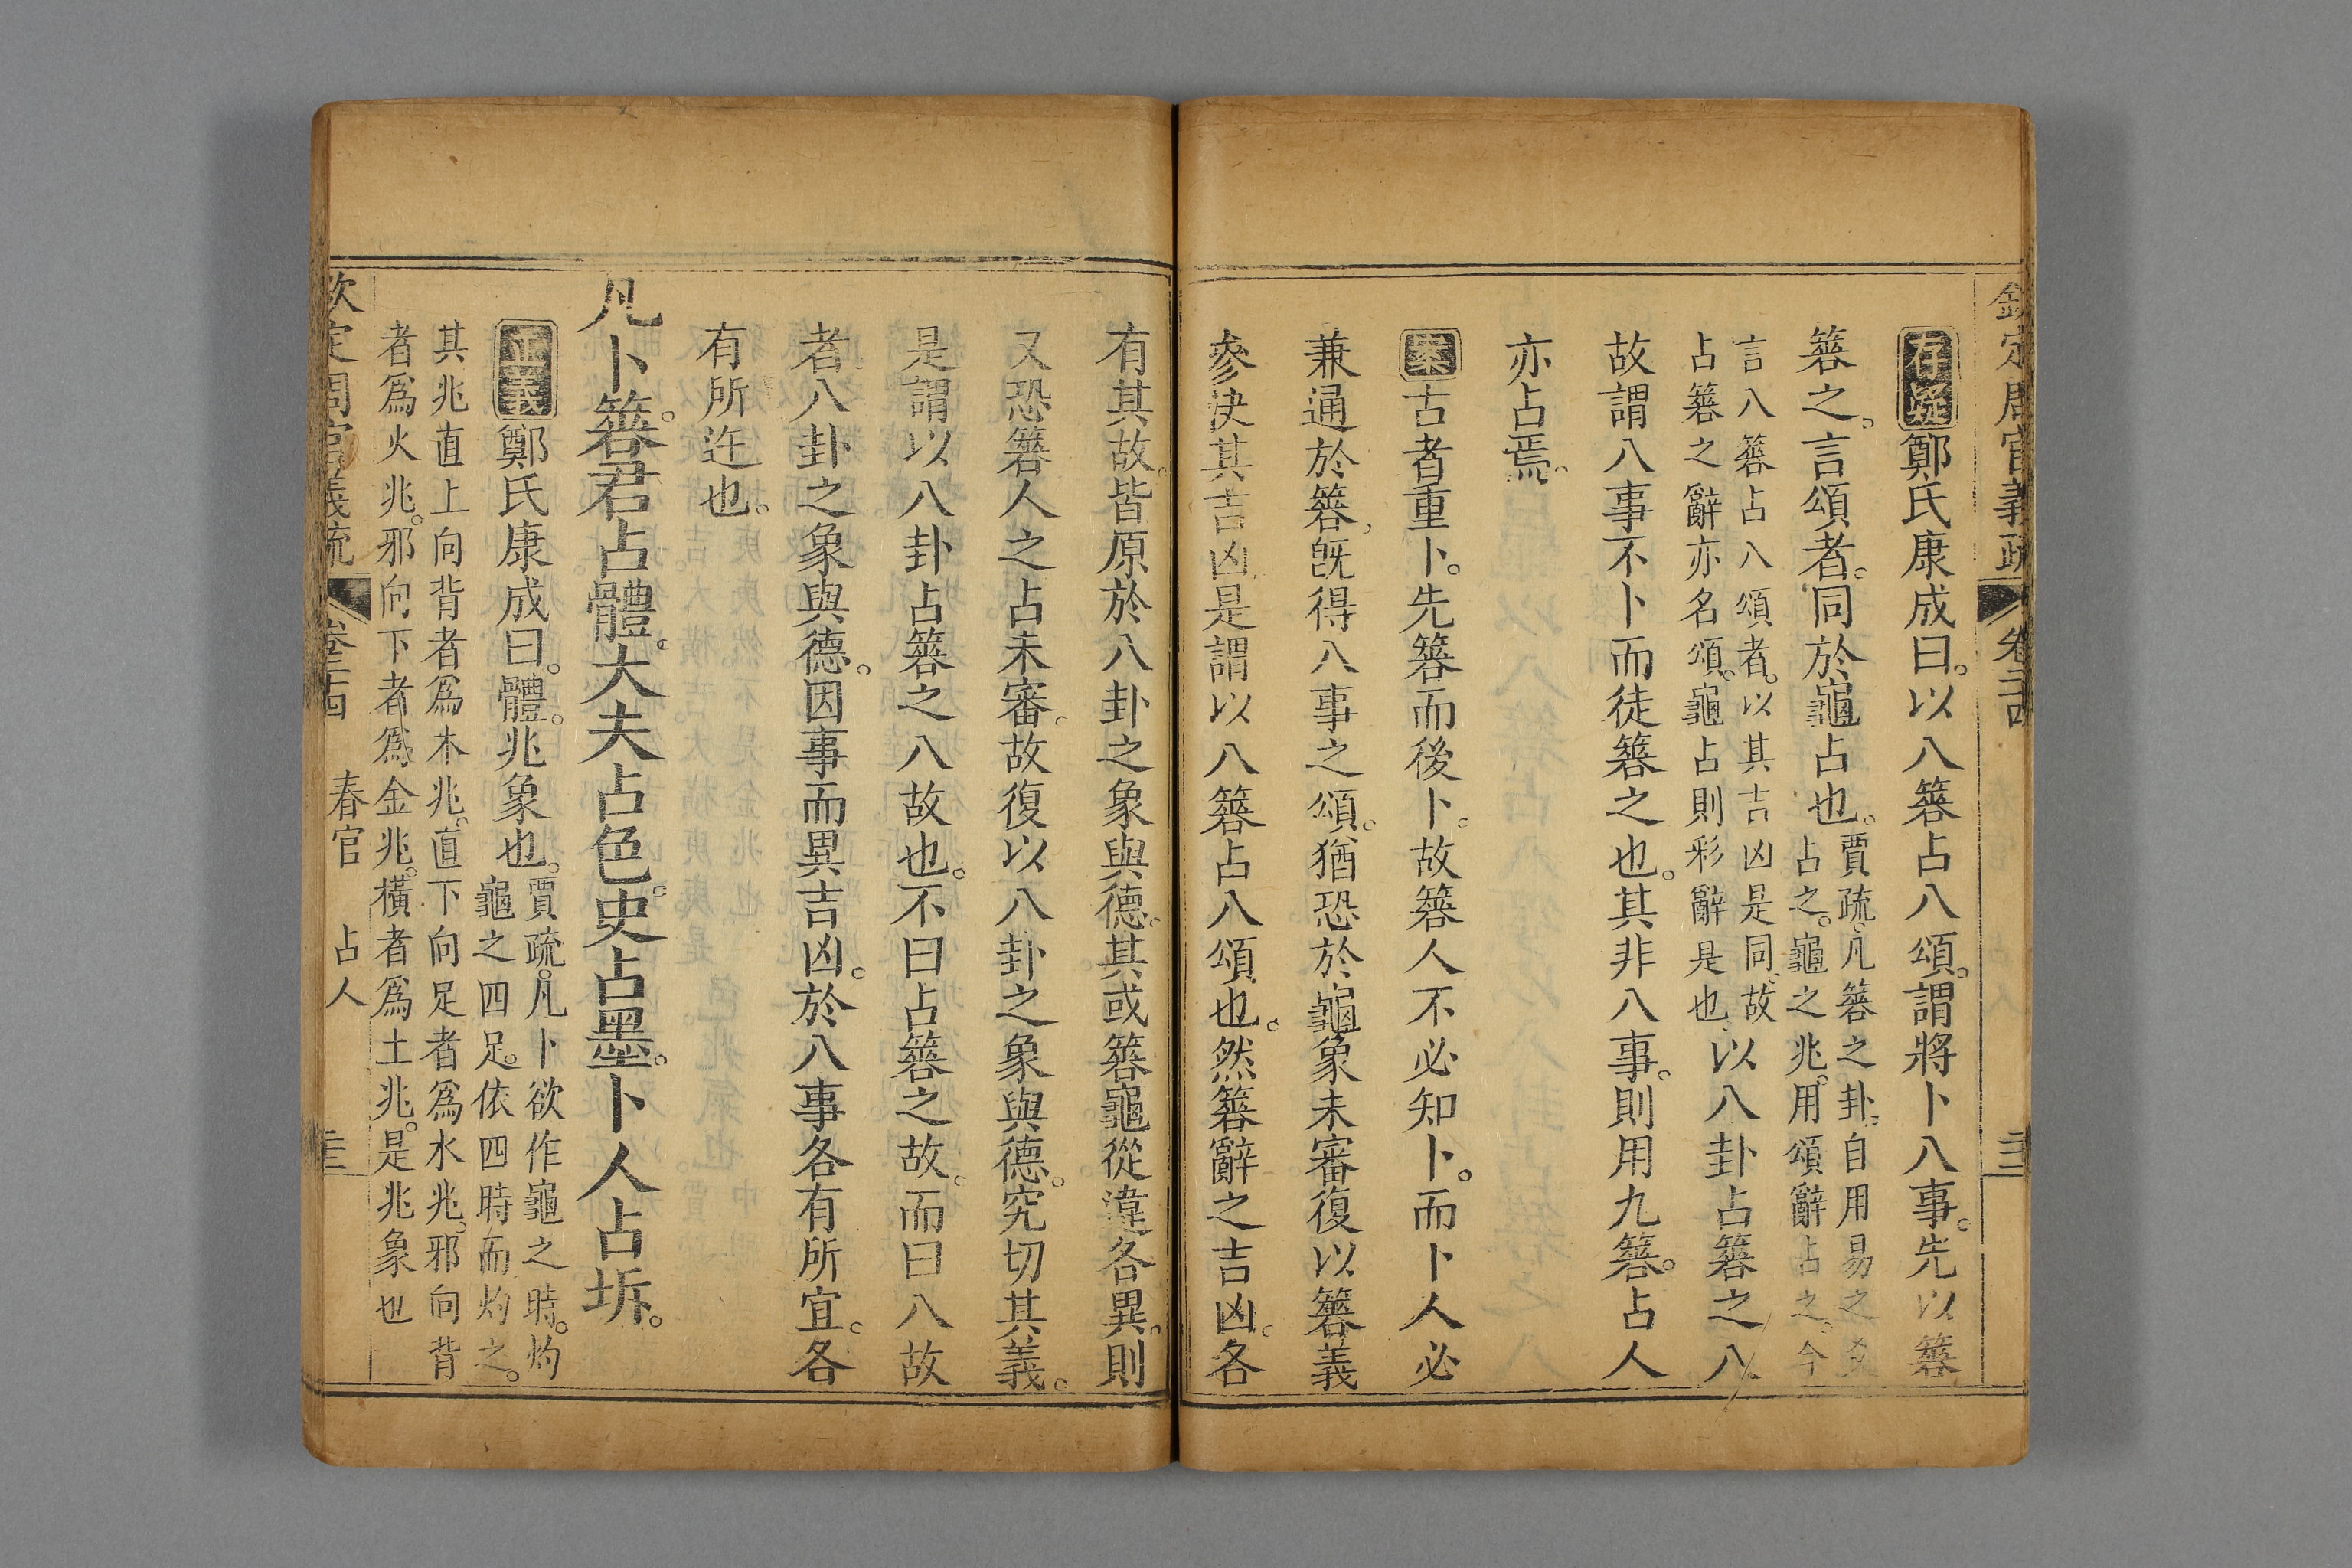 欽定周官義疏 卷二十四
存疑鄭氏康成曰。以八簭占八頌。謂將卜八事。先以簭
簭之。言頌者。同於龜占也。賈疏。凡簭之卦。自用易之爻
占之。龜之兆。用頌辭占之。今
言八簭占八頌者。以其吉凶是同。故
占簭之辭亦名頌。龜占則彩辭是也 以八卦占簭之八
故謂八事不卜而徒簭之也。其非八事。則用九簭。占人
亦占焉。
案古者重卜。先簭而後卜。故簭人不必知卜。而卜人必
兼通於簭。旣得八事之頌。猶恐於龜象未審。復以簭義
參決其吉凶。是謂以八簭占八頌也。然簭辭之吉凶。各
有其故。皆原於八卦之象與德。其或簭龜從違各異。則
又恐簭人之占未審。故復以八卦之象與德。究切其義。
是謂以八卦占簭之八故也。不曰占簭之故。而曰八故
者。八卦之象與德。因事而異吉凶。於八事各有所宜。各
有所迕也。
凡卜簭。君占體。大夫占色。史占墨。卜人占坼。
正義鄭氏康成曰。體。兆象也。賈疏。凡卜欲作龜之時。灼
龜之四足。依四時而灼之。
其兆直上向背者爲木兆。直下向足者爲水兆。邪向背
者爲火兆。邪向下者爲金兆。橫者爲土兆。是兆象也
欽定周官義疏 卷二十四 春官 占人